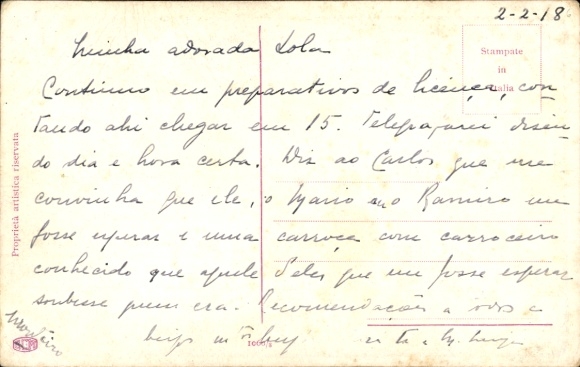 2-2-18
Stampate
in
Italia
Minha adorada Lola
Continuo em preparativos de licença, con
tando ahi chegar em 15. Telegrafarei dizen
do dia e hora certa. Diz ao Carlos que me
convinha que ele, o Mario ou o Ramiro me
fosse esperar e uma carroça com carroceiro
conhecido que aquele Sales que me fosse esperar
soubesse quem era. Recomendações a
Proprietà artistica riservata
1060/2